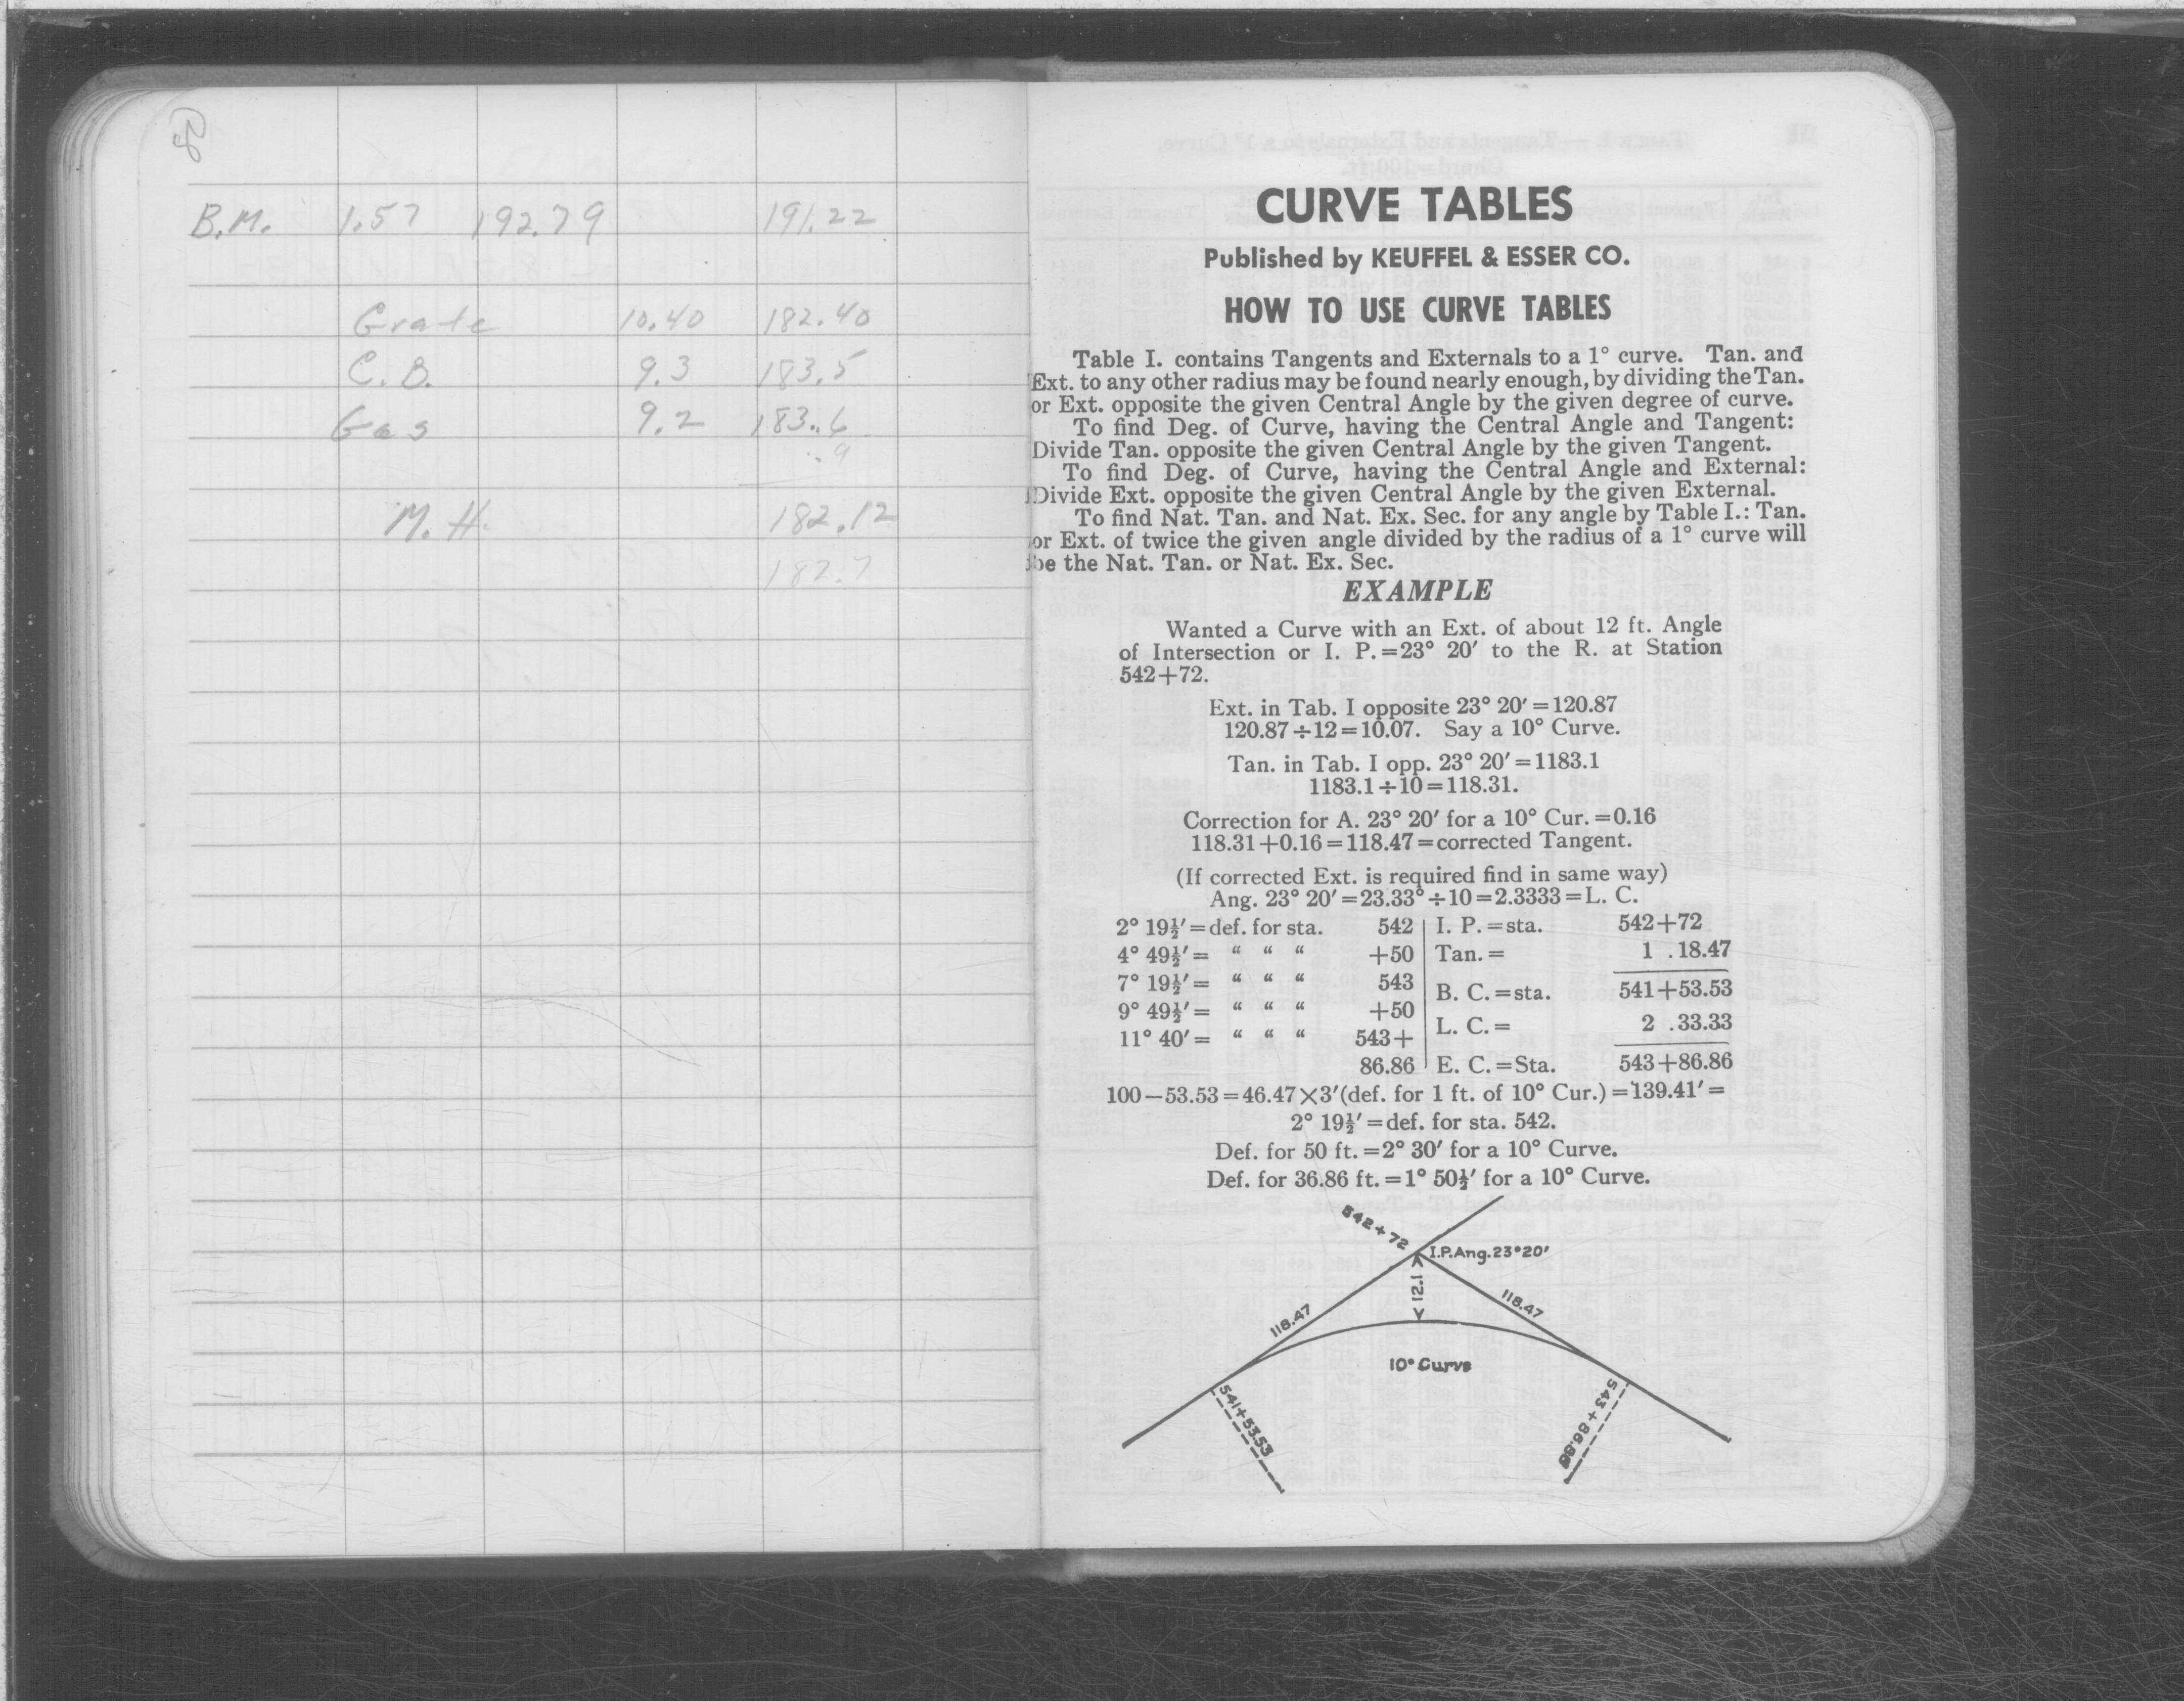 B.M. 1.57 192.79 191.22
Grate 10.40 182.40
C.B. 9.3 183.5
Gas 9.2 183.6
.9
M.H. 182.12
182.7
CURVE TABLES
Published by KEUFFEL & ESSER CO.
HOW TO USE CURVE TABLES
Table I. contains Tangents and Externals to a 1° curve. Tan. and
Ext. to any other radius may be found nearly enough, by dividing the Tan.
or Ext. opposite the given Central Angle by the given degree of curve.
To find Deg. of Curve, having the Central Angle and Tangent:
Divide Tan. opposite the given Central Angle by the given Tangent.
To find Deg. of Curve, having the Central Angle and External:
Divide Ext. opposite the given Central Angle by the given External.
To find Nat. Tan. and Nat. Ex. Sec. for any angle by Table I.: Tan.
or Ext. of twice the given angle divided by the radius of a 1° curve will
be the Nat. Tan. or Nat. Ex. Sec.
EXAMPLE
Wanted a Curve with an Ext. of about 12 ft. Angle
of Intersection or I. P.=23° 20′ to the R. at Station
542+72.
Ext. in Tab. I opposite 23° 20′=120.87
120.87÷12=10.07. Say a 10° Curve.
Tan. in Tab. I opp. 23° 20′=1183.1
1183.1÷10=118.31.
Correction for A. 23° 20′ for a 10° Cur.=0.16
118.31+0.16=118.47=corrected Tangent.
(If corrected Ext. is required find in same way)
Ang. 23° 20′=23.33°÷10=2.3333=L. C.
2° 19½′=def. for sta. 542 I. P.=sta. 542+72
4° 49½′= “ “ “ +50 Tan.= 1 .18.47
7° 19½′= “ “ “ 543 B. C.=sta. 541+53.53
9° 49½′= “ “ “ +50 L. C.= 2 .33.33
11° 40′= “ “ “ 543+
86.86 E. C.=Sta. 543+86.86
100−53.53=46.47×3′(def. for 1 ft. of 10° Cur.)=139.41′=
2° 19½′=def. for sta. 542.
Def. for 50 ft.=2° 30′ for a 10° Curve.
Def. for 36.86 ft.=1° 50½′ for a 10° Curve.
542+72
I.P.Ang.23°20′
12.1
118.47
118.47
10° Curve
541+53.53
543+86.86